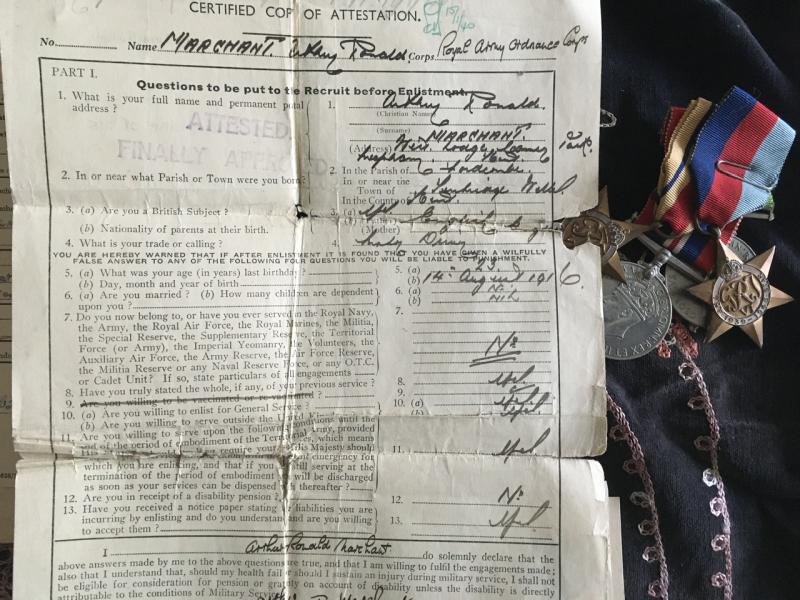 CERTIFIED COPY OF ATTESTATION.
No. Name MARCHANT. Arthur Ronald Corps. Royal Army Ordnance Corps
PART I.
Questions to be put to the Recruit before Enlistment.
1. What is your full name and permanent postal address ?
1. Arthur Ronald.
(Christian Names)
(Surname) MARCHANT.
(Address) Lodge,
ATTESTED.
FINALLY APPROVED
Kent.
2. In or near what Parish or Town were you born?
2. In the Parish of
In or near the
Town of Tunbridge Wells
In the County of Kent.
3. (a) Are you a British Subject ?
3. (a) Yes
(b) Nationality of parents at their birth.
(Mother)
4. What is your trade or calling ?
4.
YOU ARE HEREBY WARNED THAT IF AFTER ENLISTMENT IT IS FOUND THAT YOU HAVE GIVEN A WILFULLY
FALSE ANSWER TO ANY OF THE FOLLOWING FOUR QUESTIONS YOU WILL BE LIABLE TO PUNISHMENT.
5. (a) What was your age (in years) last birthday?
5. (a) 23
(b) Day, month and year of birth
(b) 14th August 1916.
6. (a) Are you married ? (b) How many children are dependent
upon you ?
6. (a) No
Nil
7. Do you now belong to, or have you ever served in the Royal Navy,
the Army, the Royal Air Force, the Royal Marines, the Militia,
the Special Reserve, the Supplementary Reserve, the Territorial
Force (or Army), the Imperial Yeomanry, the Volunteers, the
Auxiliary Air Force, the Army Reserve, the Air Force Reserve,
the Militia Reserve or any Naval Reserve Force, or any O.T.C.
or Cadet Unit? If so, state particulars of all engagements
7.
No
8. Have you truly stated the whole, if any, of your previous service ?
8. Yes
9. Are you willing to be vaccinated or re-vaccinated ?
9.
10. (a) Are you willing to enlist for General Service ?
10. (a) Yes
(b) Are you willing to serve outside the United Kingdom
(b) Yes
11. Are you willing to serve upon the following conditions until the
end of the period of embodiment of the Territorial Army, provided
His Majesty should
emergency for
which you are enlisting, and that if you still serving at the
termination of the period of embodiment will be discharged
as soon as your services can be dispensed with thereafter ?
11. Yes
12. Are you in receipt of a disability pension ?
12. No
13. Have you received a notice paper stating the liabilities you are
incurring by enlisting and do you understand and are you willing
to accept them ?
13. Yes
I Arthur Ronald Marchant do solemnly declare that the
above answers made by me to the above questions are true, and that I am willing to fulfil the engagements made;
also that I understand, should my health fail or should I sustain an injury during military service, I shall not
be eligible for consideration for pension or gratuity on account of disability unless the disability is directly
attributable to the conditions of Military Service